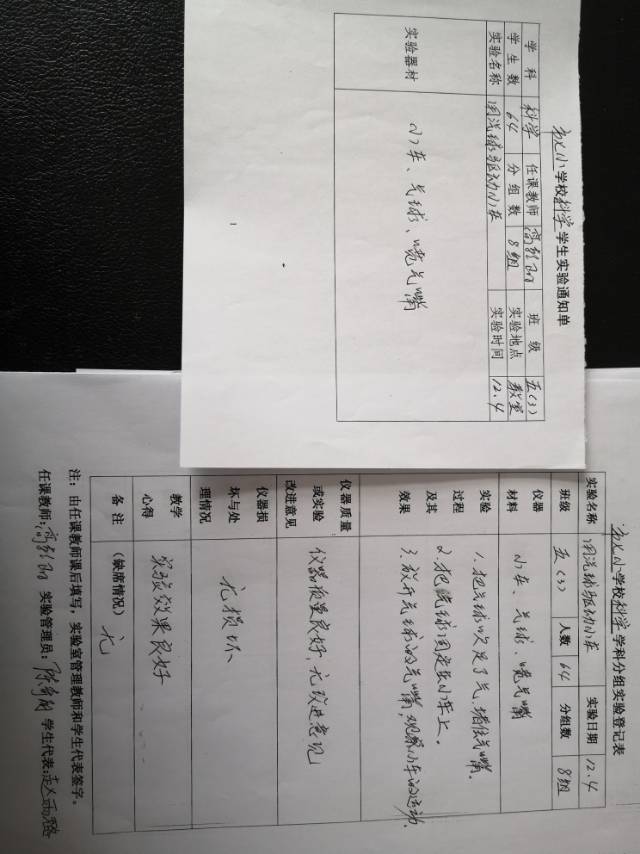 小学校科学学生实验通知单
学科 科学 任课教师 班级 五(3)
学生数 64 分组数 8组 实验地点 教室
实验名称 用汽球驱动小车 实验时间 12.4
实验器材 小车、气球、喷气嘴
小学校科学学科分组实验登记表
实验名称 用汽球驱动小车 实验日期 12.4
班级 五(3) 人数 64 分组数 8组
仪器材料 小车、气球、喷气嘴
实验过程及其效果 1.把气球吹足了气,堵住气嘴.
2.把气球固定在小车上.
3.放开气球的气嘴,观察小车的运动.
仪器质量或实验改进意见 仪器质量良好,无改进意见
仪器损坏与处理情况 无损坏
教学心得 实验效果良好
备注 (缺席情况) 无
注:由任课教师课后填写,实验室管理教师和学生代表签字。
任课教师: 实验管理员: 学生代表: